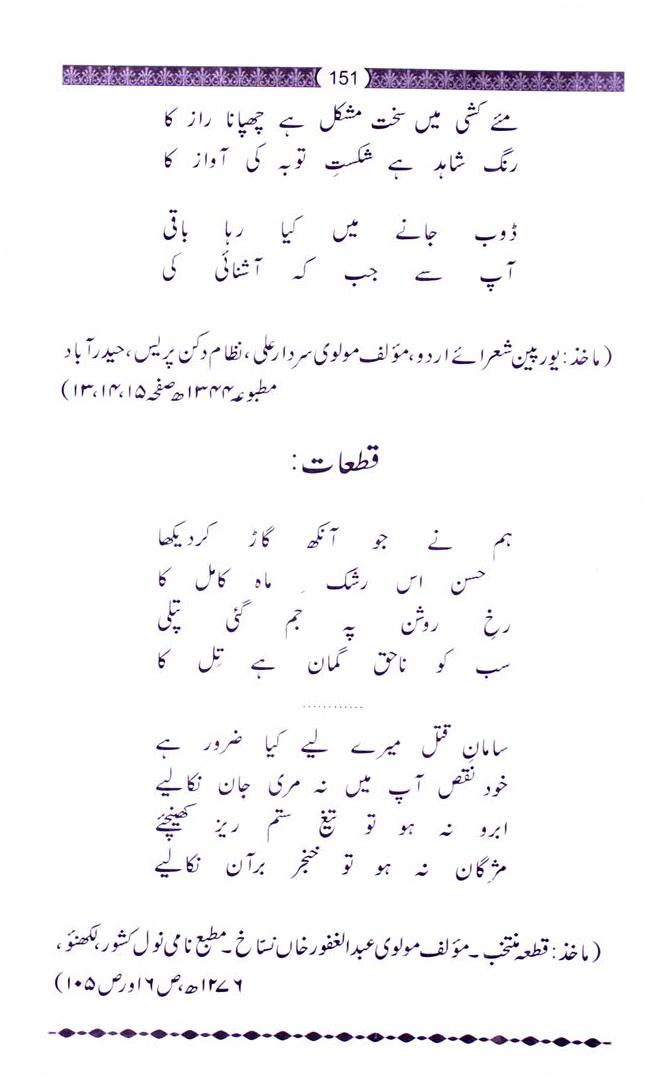 151
مئے کشی میں سخت مشکل ہے چھپانا راز کا
رنگ شاہد ہے شکستِ توبہ کی آواز کا
ڈوب جانے میں کیا رہا باقی
آپ سے جب کہ آشنائی کی
(ماخذ: یورپین شعرائے اردو، مؤلف مولوی سردار علی، نظام دکن پریس، حیدرآباد
مطبوعہ ۱۳۴۴ھ صفحہ ۱۳،۱۴،۱۵)
قطعات:
ہم نے جو آنکھ گاڑ کر دیکھا
حسن اس رشک ِ ماہ کامل کا
رخِ روشن پہ جم گئی پتلی
سب کو ناحق گمان ہے تِل کا
............
سامانِ قتل میرے لیے کیا ضرور ہے
خود نقص آپ میں نہ مری جان نکالیے
ابرو نہ ہو تو تیغ ستم ریز کھینچئے
مژگان نہ ہو تو خنجر برآن نکالیے
(ماخذ: قطعہ منتخب۔ مؤلف مولوی عبدالغفور خاں نسّاخ۔ مطبع نامی نول کشور، لکھنؤ،
۱۲۷۶ھ، ص ۱۶ اور ص ۱۰۵)